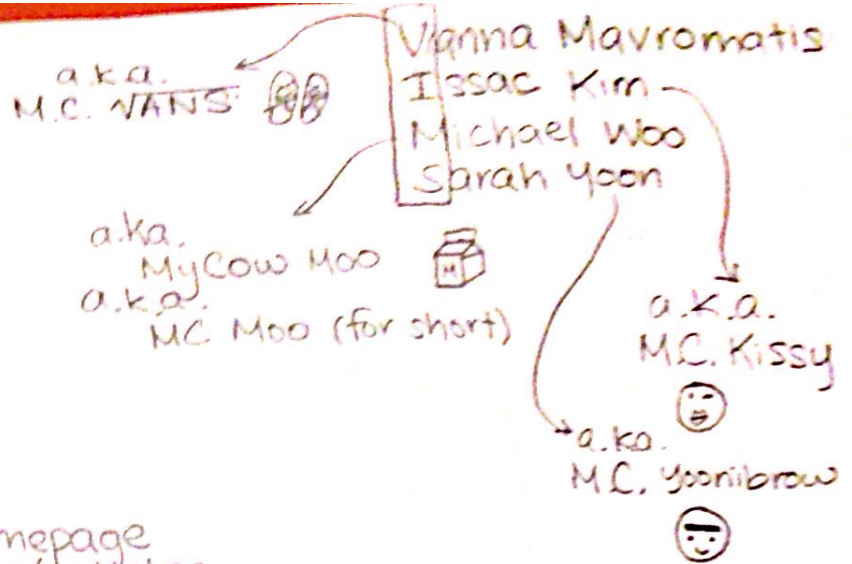 Vianna Mavromatis
Issac Kim
Michael Woo
Sarah Yoon
a.k.a.
M.C. VANS
a.ka.
MyCow Moo
M
a.k.a.
MC Moo (for short)
a.k.a.
M.C. Kissy
a.ka.
M.C. Yooniibrow
mepage